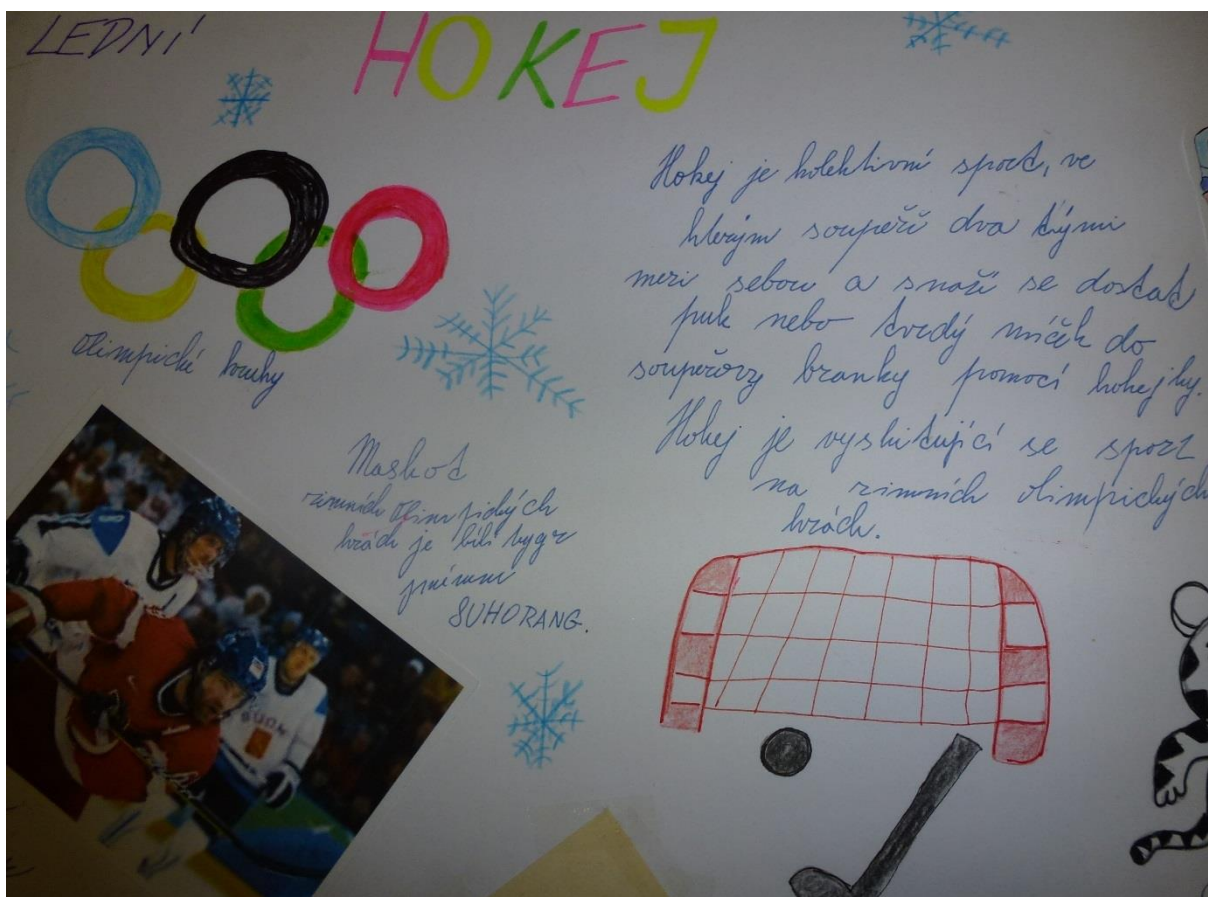 LEDNÍ HOKEJ
Hokej je kolektivní sport, ve
kterým soupeří dva tými
mezi sebou a snaží se dostat
puk nebo tvrdý míček do
soupeřovy branky pomocí hokejky.
Hokej je vyskitující se sport
na zimních olimpických
hrách.
olimpické kruhy
Maskot
zimních olimpických
hrách je bílí tygr
jménem
SUHORANG.
SUOMI